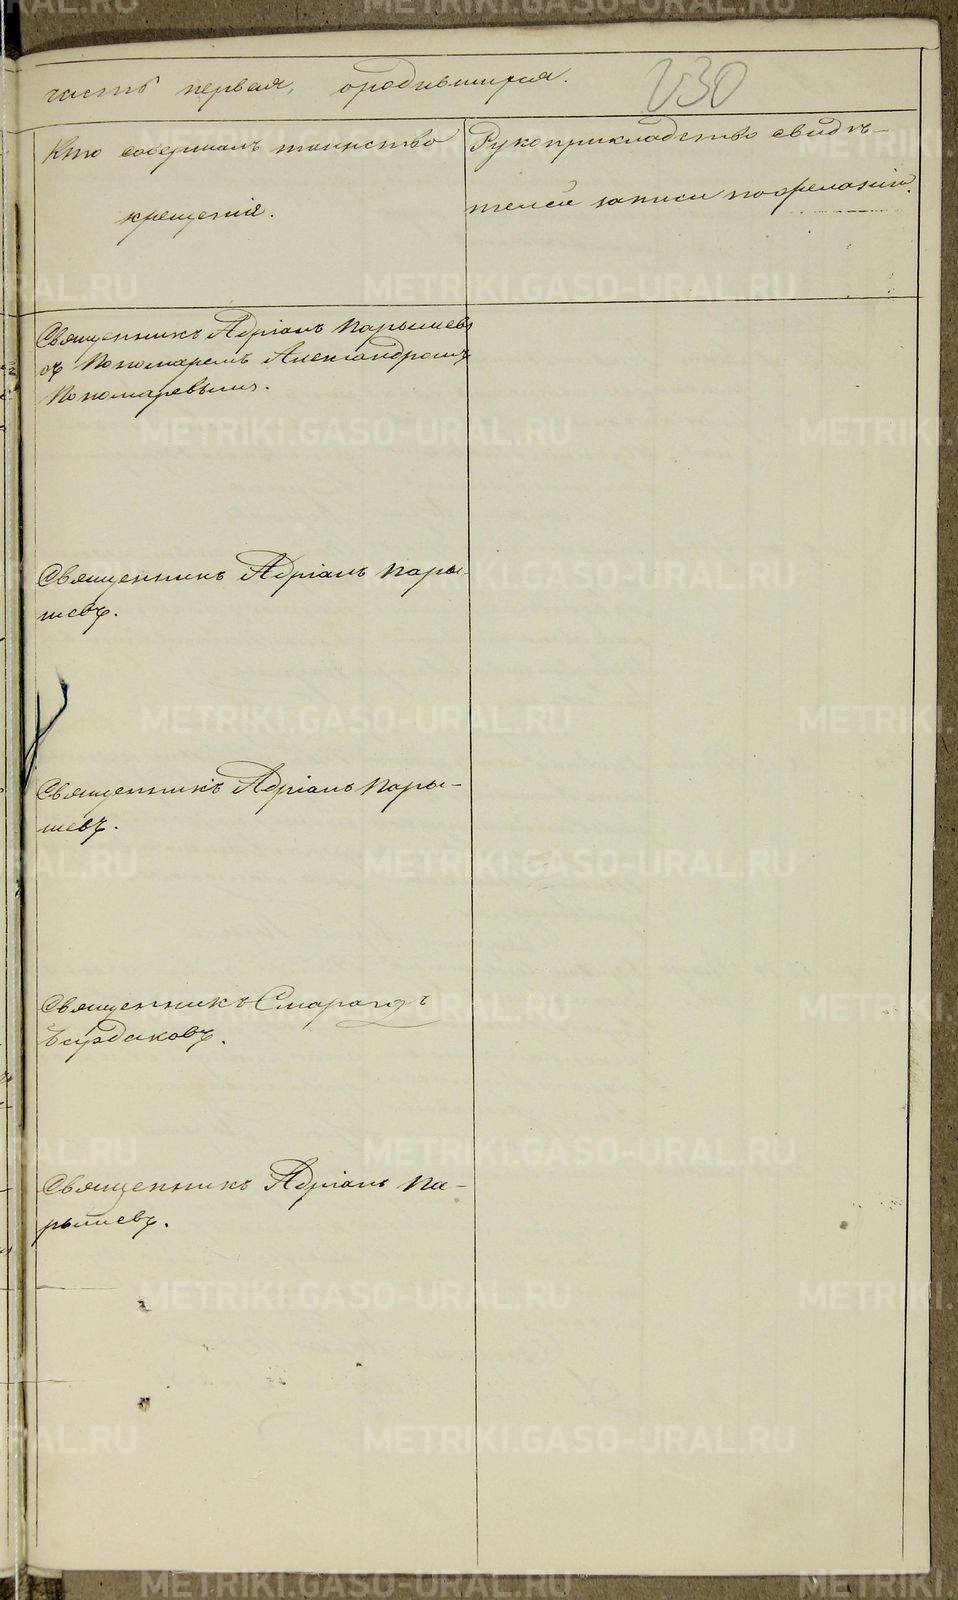 часть первая, о родившихся.
230
Кто совершалъ таинство
крещенія.
Рукоприкладство свидѣ-
телей записи по желанію.
Священникъ Адріанъ Парышевъ
съ Пономаремъ Александромъ
Пономаревымъ.
Священникъ Адріанъ Пары-
шевъ.
Священникъ Адріанъ Пары-
шевъ.
Священникъ Смарагдъ
Бардаковъ.
Священникъ Адріанъ Па-
рышевъ.
METRIKI.GASO-URAL.RU